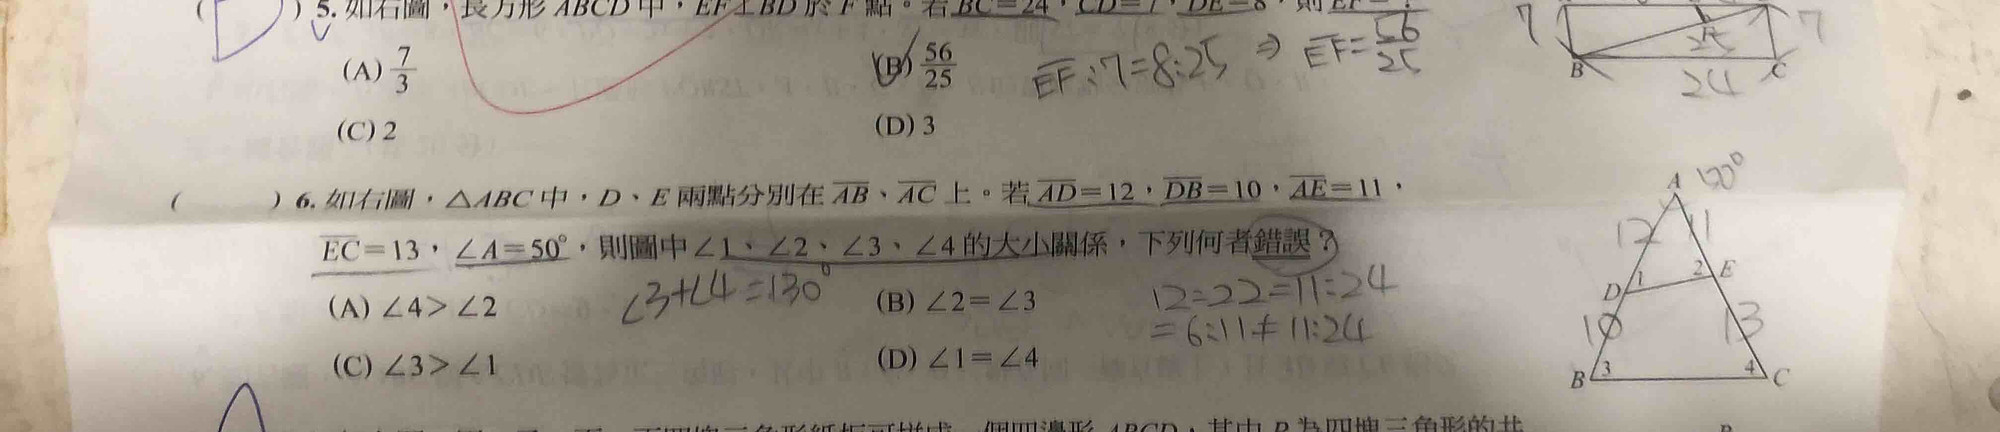 5. 如右圖，長方形 ABCD 中，EF⊥BD 於 F 點。若 BC=24，CD=7，DE=8，則 EF=?
(A) 7/3
(B) 56/25
EF:7=8:25 ⇒ EF=56/25
(C) 2
(D) 3
7
25
7
B
24
C
( ) 6. 如右圖，△ABC 中，D、E 兩點分別在 AB、AC 上。若 AD=12，DB=10，AE=11，
EC=13，∠A=50°，則圖中∠1、∠2、∠3、∠4 的大小關係，下列何者錯誤？
∠3+∠4=130°
(A) ∠4>∠2
(B) ∠2=∠3
12:22=11:24
=6:11≠11:24
(C) ∠3>∠1
(D) ∠1=∠4
A
12
11
D
1
2
E
10
13
B
3
4
C